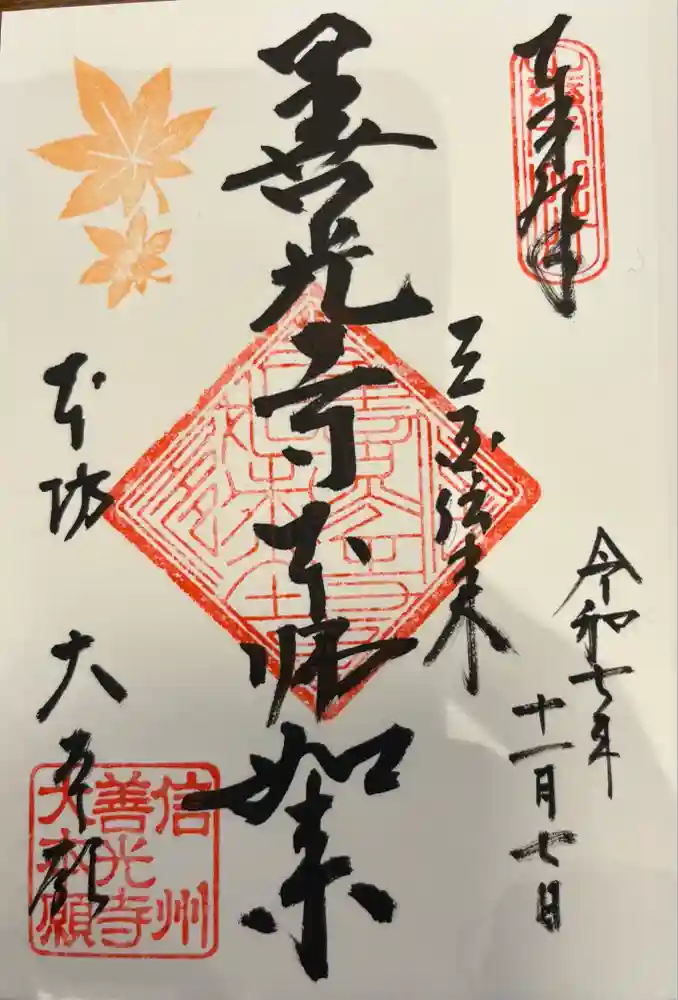 奉拝
令和七年
十一月七日
三国伝来
善光寺本師如来
本坊 大本願
信州
善光寺
大本願